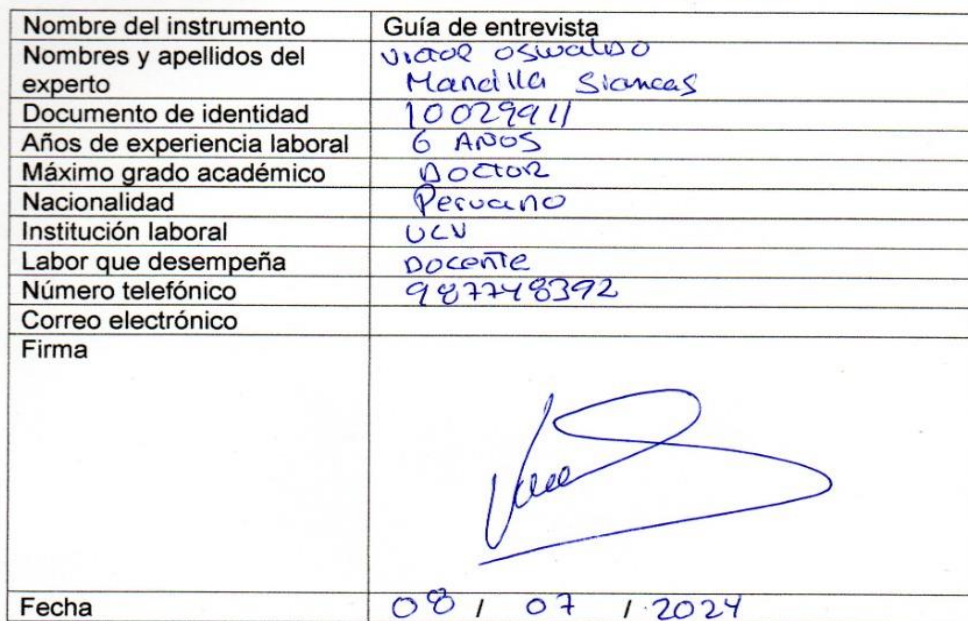 Nombre del instrumento Guía de entrevista
Nombres y apellidos del experto Victor Oswaldo
Mancilla Siancas
Documento de identidad 10029911
Años de experiencia laboral 6 AÑOS
Máximo grado académico Doctor
Nacionalidad Peruano
Institución laboral UCV
Labor que desempeña Docente
Número telefónico 987748392
Correo electrónico
Firma
Fecha 08 / 07 / 2024